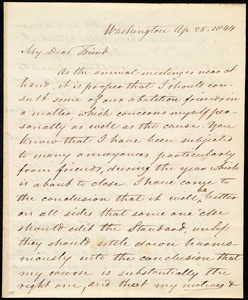 Washington Ap. 25. 1844
My Dear Friend.
As the annual meetings near at
hand, it is proper that I should con-
sult some of our abolition friends, in
a matter which concerns myself per-
sonally as well as the cause. You
know that I have been subjected
to many annoyances particularly
from friends, during the year which
is about to close. I have come to
the conclusion that it will be better
on all sides that some one else
should edit the Standard, unless
they should settle down harmo-
niously into the conclusion that
my course is substantially the
right one, and that my motives &